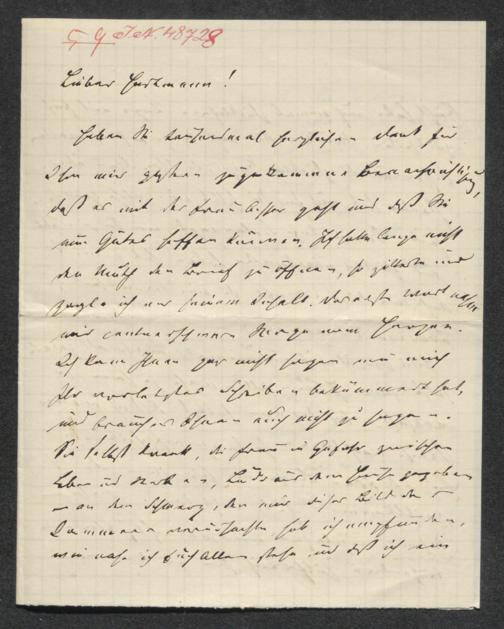 I.N. 48728
Lieber Hartmann!
Haben Sie tausendmal herzlichen Dank für
Ihre mir gestern zugekommene Benachrichtigung,
daß es mit der Frau besser geht und daß Sie
nun Gutes hoffen können. Ich hatte lange nicht
den Muth den Brief zu öffnen, so zitterte und
zagte ich vor seinem Inhalt. Das erste Wort nahm
mir
Ich kann Ihnen gar nicht sagen wie mich
Ihr vorletztes Schreiben bekümmert hat,
und brauche es Ihnen auch nicht zu sagen.
Sie selbst krank, die Frau in Gefahr zwischen
Leben und Sterben, aus dem Hause gegeben
– an dem Schmerz, den mir dieses Bild des
verursachte hab ich empfunden,
wie nahe ich Euch Allen stehe und daß ich ein